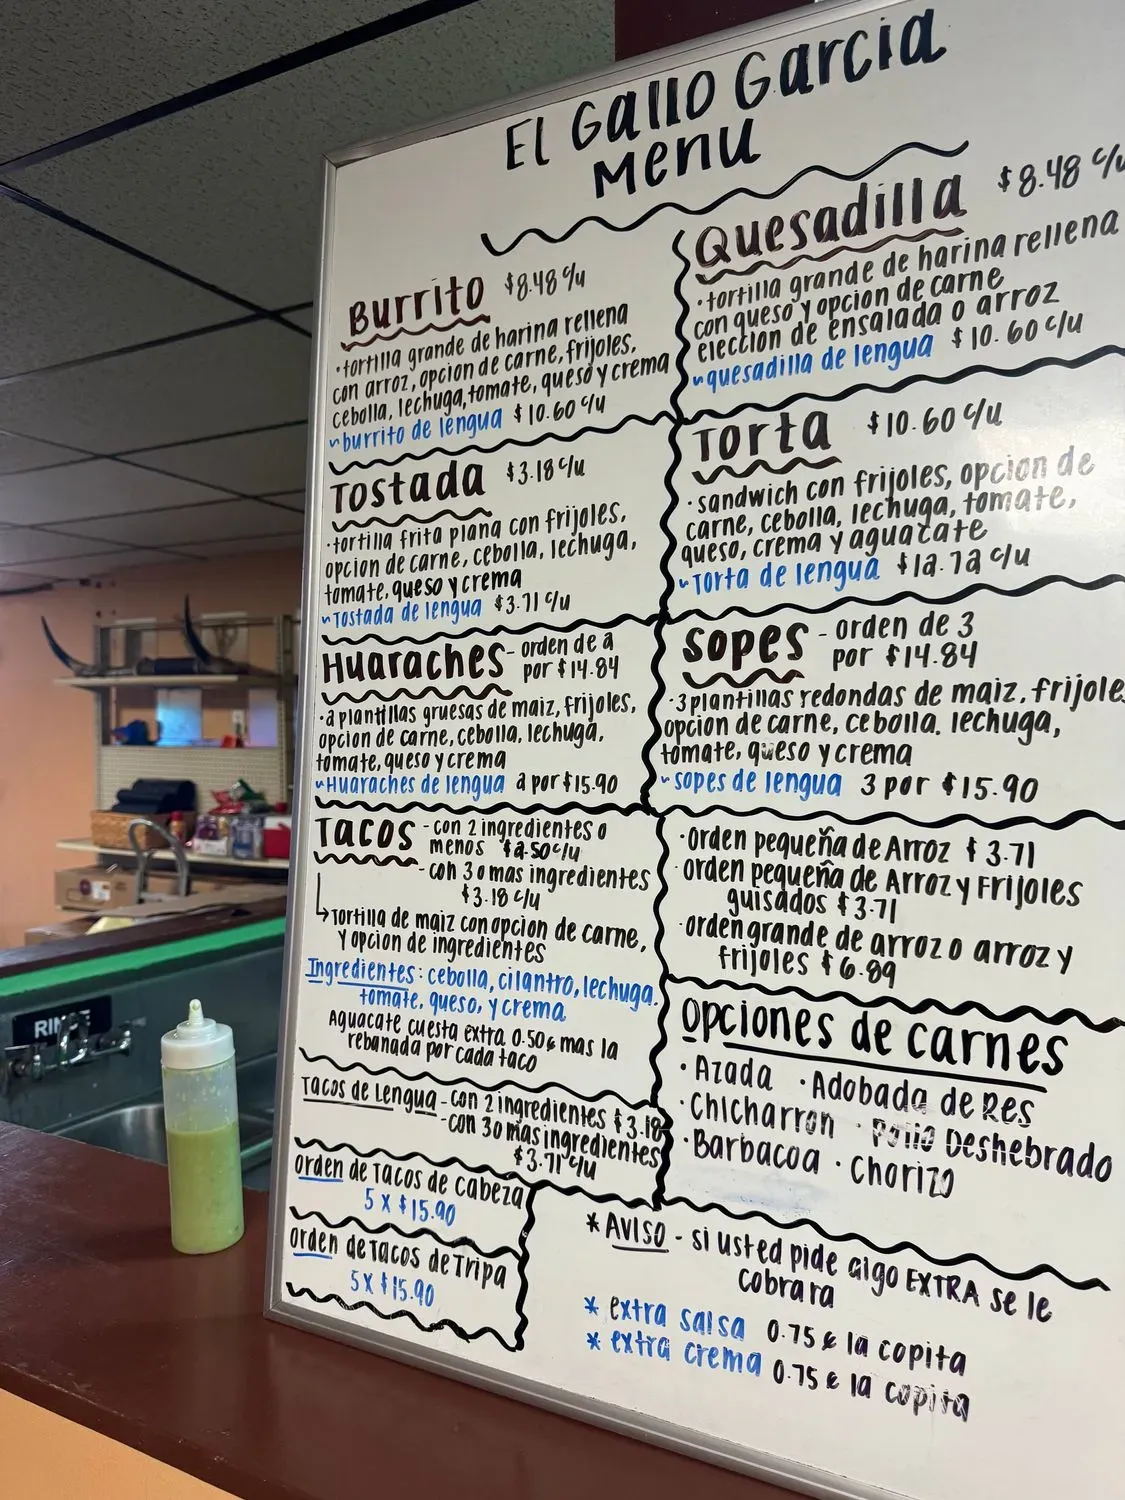 El Gallo Garcia
Menu
Burrito $8.48 c/u
·tortilla grande de harina rellena
con arroz, opcion de carne, frijoles,
cebolla, lechuga, tomate, queso y crema
~burrito de lengua $10.60 c/u
Tostada $3.18 c/u
·tortilla frita plana con frijoles,
opcion de carne, cebolla, lechuga,
tomate, queso y crema
~Tostada de lengua $3.71 c/u
Huaraches - orden de 2
por $14.84
·2 plantillas gruesas de maiz, frijoles,
opcion de carne, cebolla, lechuga,
tomate, queso y crema
~Huaraches de lengua 2 por $15.90
Tacos - con 2 ingredientes o
menos $2.50 c/u
- con 3 o mas ingredientes
$3.18 c/u
Tortilla de maiz con opcion de carne,
y opcion de ingredientes
Ingredientes: cebolla, cilantro, lechuga,
tomate, queso, y crema
Aguacate cuesta extra 0.50¢ mas la
rebanada por cada taco
Tacos de Lengua - con 2 ingredientes $3.18
- con 3 o mas ingredientes
$3.71 c/u
Orden de Tacos de Cabeza
5 x $15.90
Orden de Tacos de Tripa
5 x $15.90
Quesadilla $8.48 c/u
·tortilla grande de harina rellena
con queso y opcion de carne
eleccion de ensalada o arroz
~quesadilla de lengua $10.60 c/u
Torta $10.60 c/u
·sandwich con frijoles, opcion de
carne, cebolla, lechuga, tomate,
queso, crema y aguacate
~Torta de lengua $12.72 c/u
Sopes - orden de 3
por $14.84
·3 plantillas redondas de maiz, frijole
opcion de carne, cebolla, lechuga,
tomate, queso y crema
~sopes de lengua 3 por $15.90
·orden pequeña de Arroz $3.71
·orden pequeña de Arroz y Frijoles
guisados $3.71
·orden grande de arroz o arroz y
frijoles $6.89
Opciones de carnes
·Azada ·Adobada de Res
·Chicharron ·Pollo Deshebrado
·Barbacoa ·Chorizo
*AVISO - si usted pide algo EXTRA se le
cobrara
* extra salsa 0.75¢ la copita
* extra crema 0.75¢ la copita